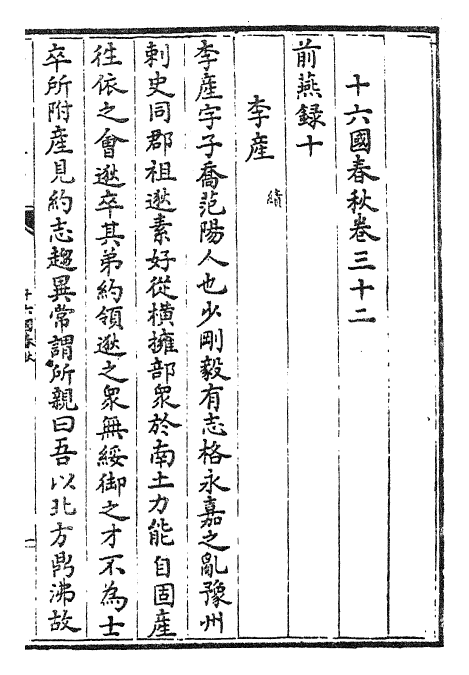 十六國春秋卷三十二
前燕録十
李產 績
李產字子喬范陽人也少剛毅有志格永嘉之亂豫州
刺史同郡祖逖素好從横擁部衆於南土力能自固產
徃依之會逖卒其弟約領逖之衆無綏御之才不為士
卒所附產見約志趨異常謂所親曰吾以北方鼎沸故
十六國春秋